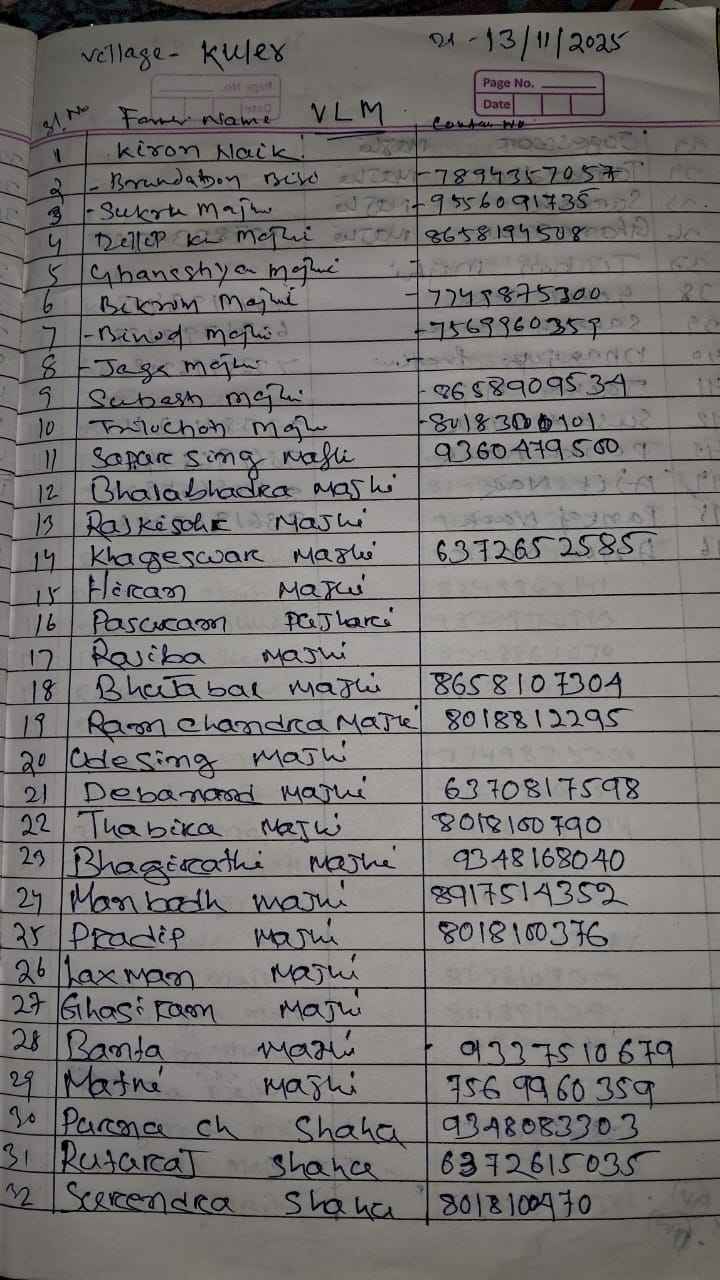 village - Kuler 21 - 13/11/2025
Page No.
Date
Sl. No Farmer Name VLM Contact No
1 Kiron Naik
2 - Brundabon Biso - 7894357057
3 - Sukru Majhi - 9556091735
4 Dillip ku Majhi 8658194508
5 Ghaneshya Majhi -
6 Bikrom Majhi - 7749875300
7 - Binod Majhi - 7569960359
8 - Jaga Majhi
9 Subash Majhi - 8658909534
10 Trilochon Majhi
11 Sapare Sing Majhi 9360479500
12 Bhalabhadra Majhi
13 Rajkisohr Majhi
14 Khageswar Majhi 6372652585
15 Hiram Majhi
16 Pascuram
17 Rasiba Majhi
18 Bhatabar Majhi 8658107304
19 Ram Chandra Majhi 8018812295
20 Udesing Majhi
21 Debanand Majhi 6370817598
22 Thabira Majhi 8018100790
23 Bhagirathi Majhi 9348168040
24 Manbadh Majhi 8917514352
25 Pradip Majhi 8018100376
26 Laxman Majhi
27 Ghasi Ram Majhi
28 Banta Majhi 9337510679
29 Matni Majhi 7569960359
30 Parna ch Shaha 9348083303
31 Rutaraj Shaha 6372615035
32 Surendra Shaha 8018100470